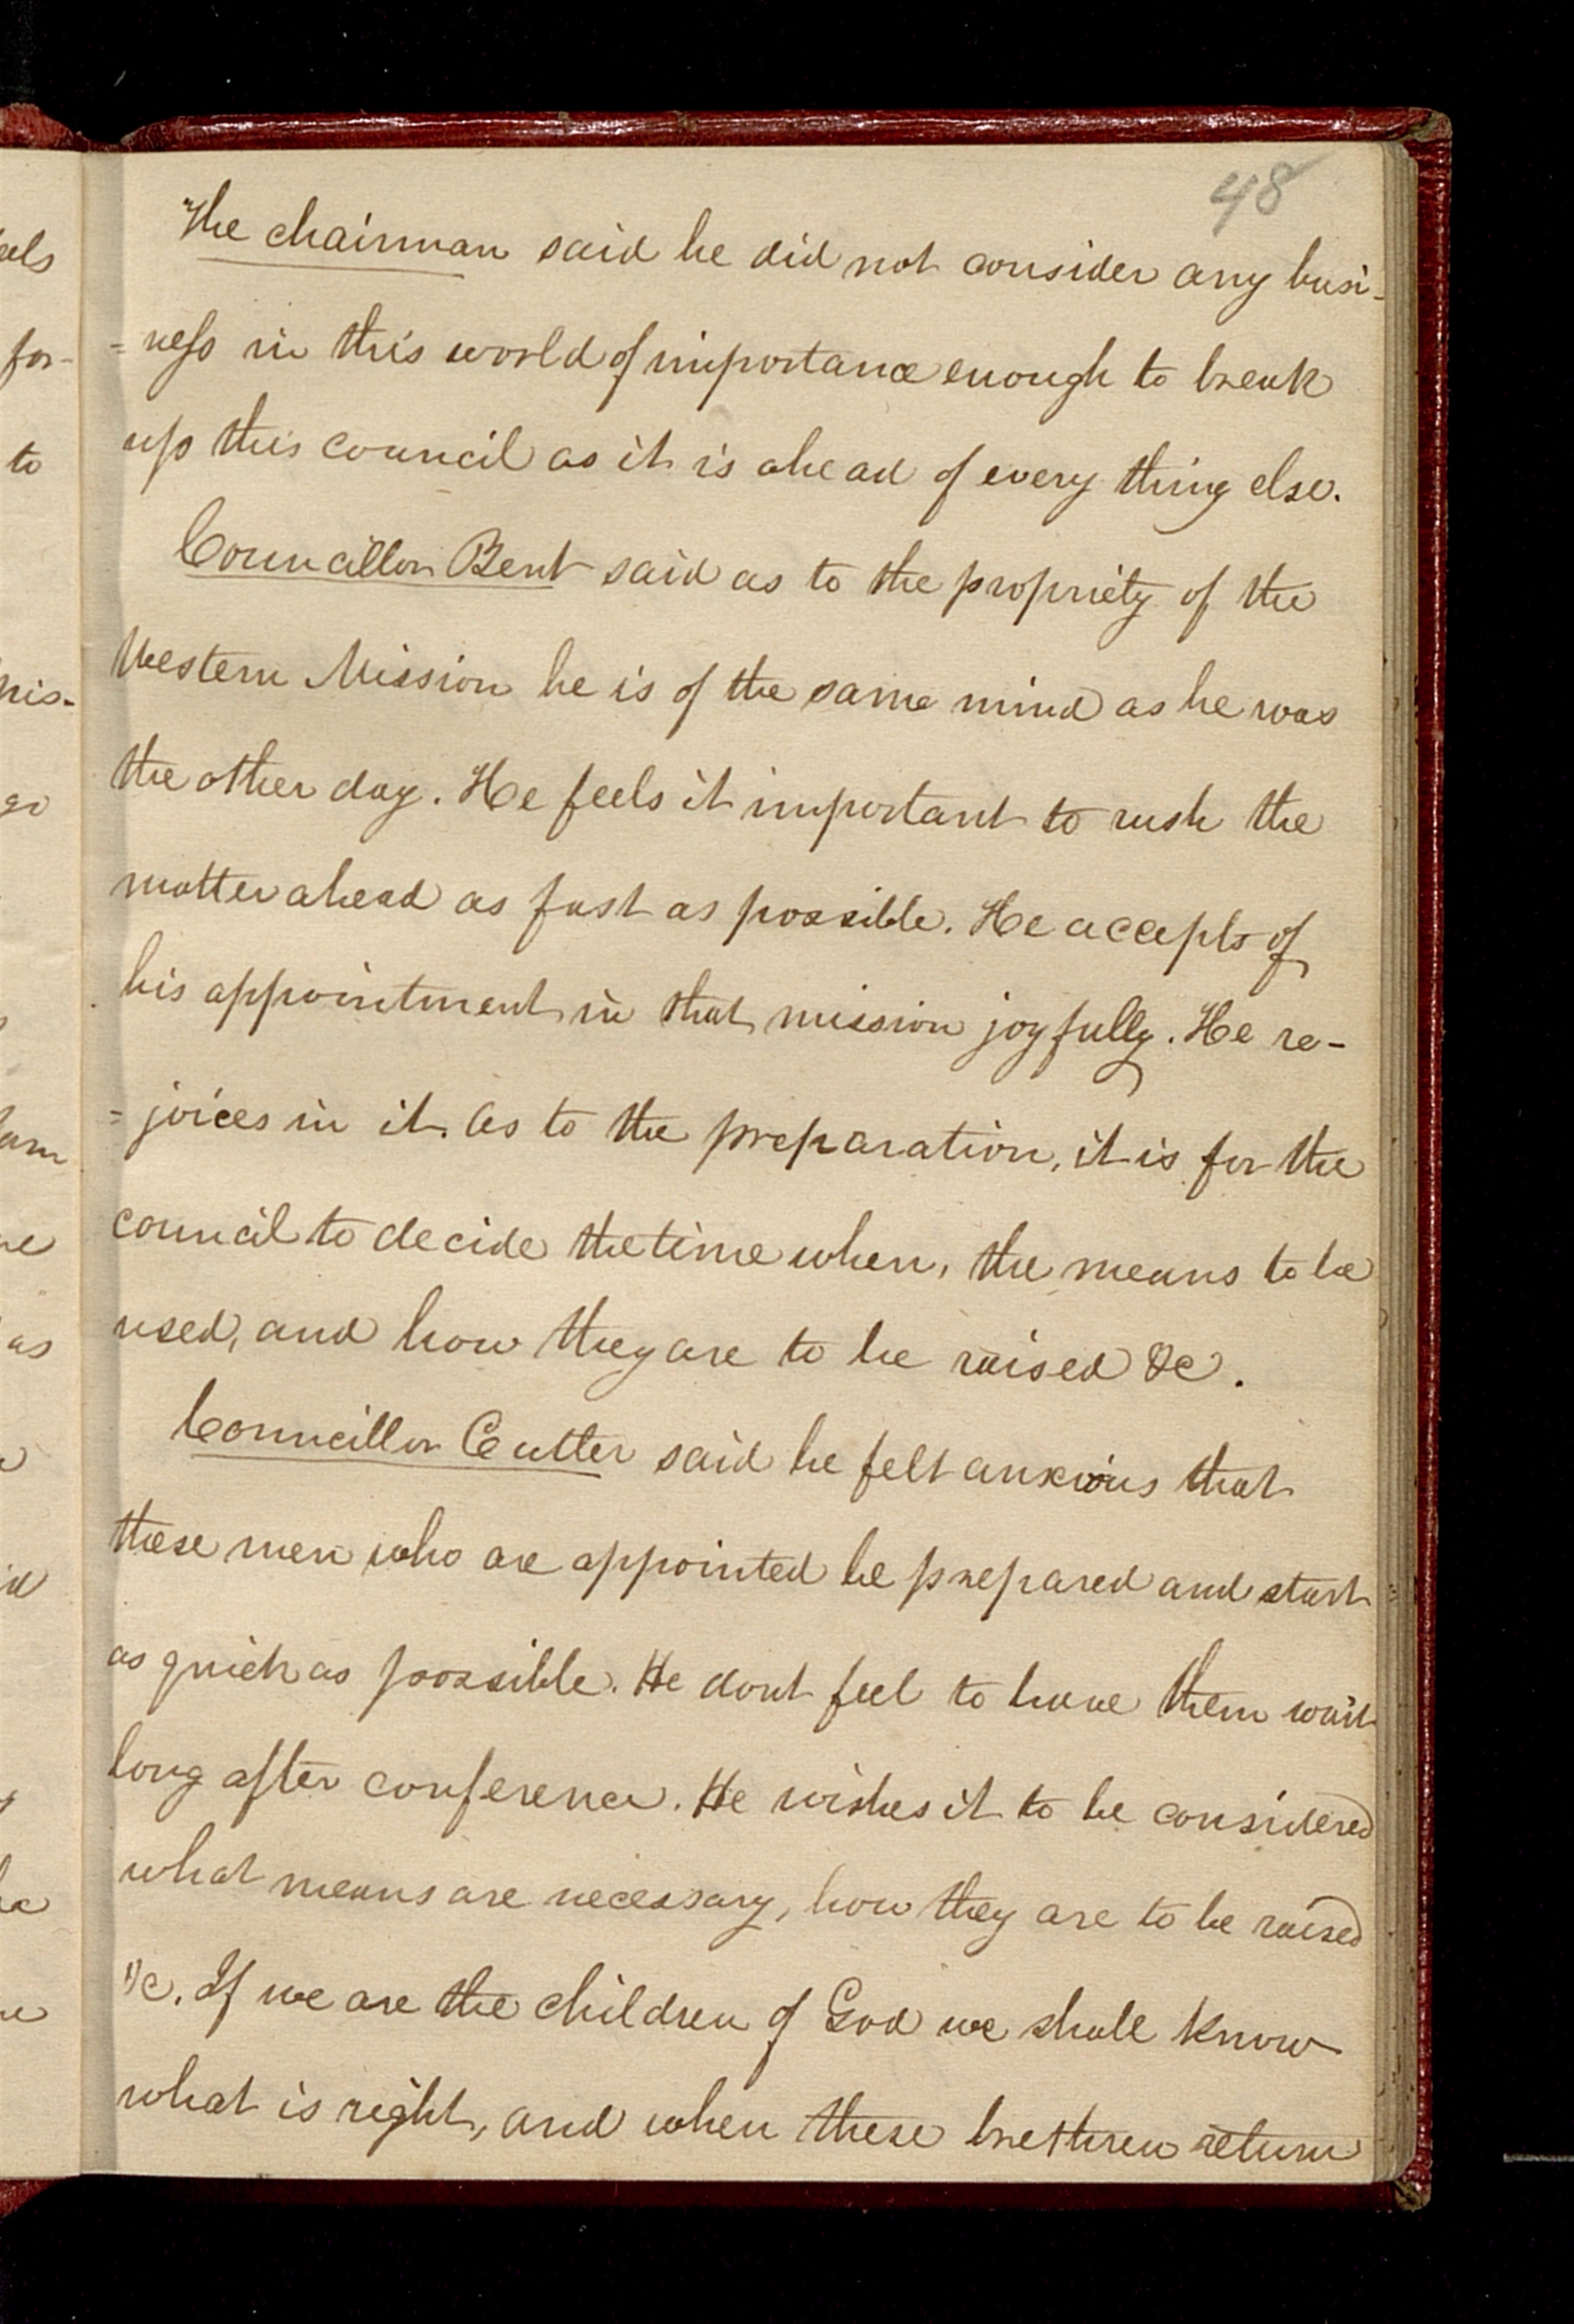 48
The chairman said he did not consider any busi-
=ness in this world of importance enough to break
up this council as it is ahead of every thing else.
Councillor Bent said as to the propriety of the
Western Mission he is of the same mind as he was
the other day. He feels it important to rush the
matter ahead as fast as possible. He accepts of
his appointment in that mission joyfully. He re-
=joices in it. As to the preparation, it is for the
council to decide the time when, the means to be
used, and how they are to be raised &c.
Councillor Cutler said he felt anxious that
these men who are appointed be prepared and start
as quick as possible. He dont feel to have them wait
long after conference. He wishes it to be considered
what means are necessary, how they are to be raised
&c. If we are the children of God we shall know
what is right, and when these brethren return